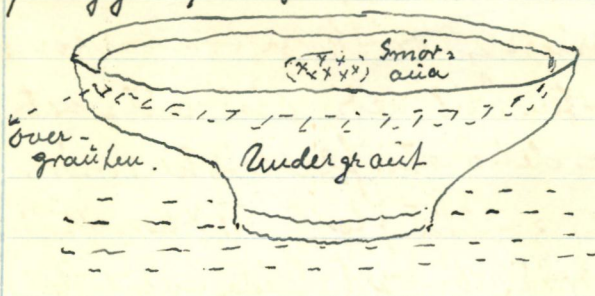 Smör=
aua
över-
graüten.
Undergraüt